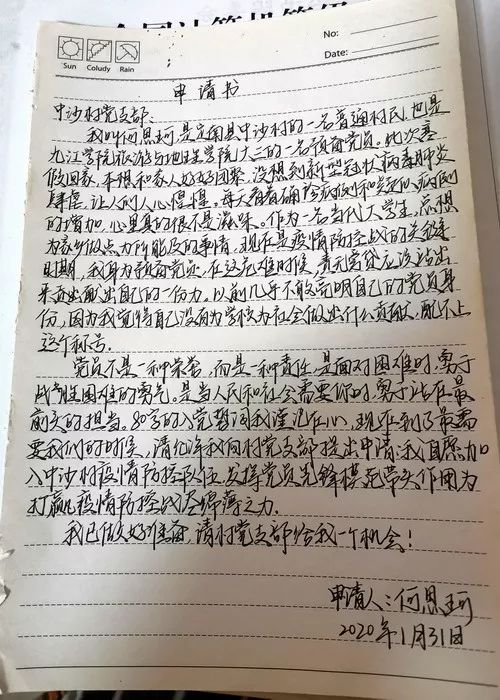 No:
Date:
Sun Coludy Rain
申请书
中沙村党支部、
我叫何思珂,是定南县中沙村的一名普通村民,也是
九江学院旅游与地理学院大三的一名预备党员。此次寒
假回家,本想和家人好好团聚,没想到新型冠状病毒肺炎
肆虐,让人们人心惶惶。每天看着确诊病例和疑似病例
的增加,心里真的很不是滋味。作为一名当代大学生,总想
为家乡做点力所能及的事情,现在是疫情防控战的关键
时期,我身为预备党员,在这危难时候,责无旁贷应该站出
来贡献出自己的一份力。以前几乎不敢亮明自己的党员身
份,因为我觉得自己没有为学校为社会做出什么贡献,配不上
这个称号。
党员不是一种荣誉,而是一种责任,是面对困难时,勇于
战胜困难的勇气。是当人民和社会需要你时,勇于站在最
前头的担当。80字的入党誓词我谨记在心,现在到了最需
要我们的时候,请允许我向村党支部提出申请:我自愿加
入中沙村疫情防控队伍,发挥党员先锋模范带头作用,为
打赢疫情防控战尽绵薄之力。
我已做好准备,请村党支部给我一个机会!
申请人:何思珂
2020年1月31日